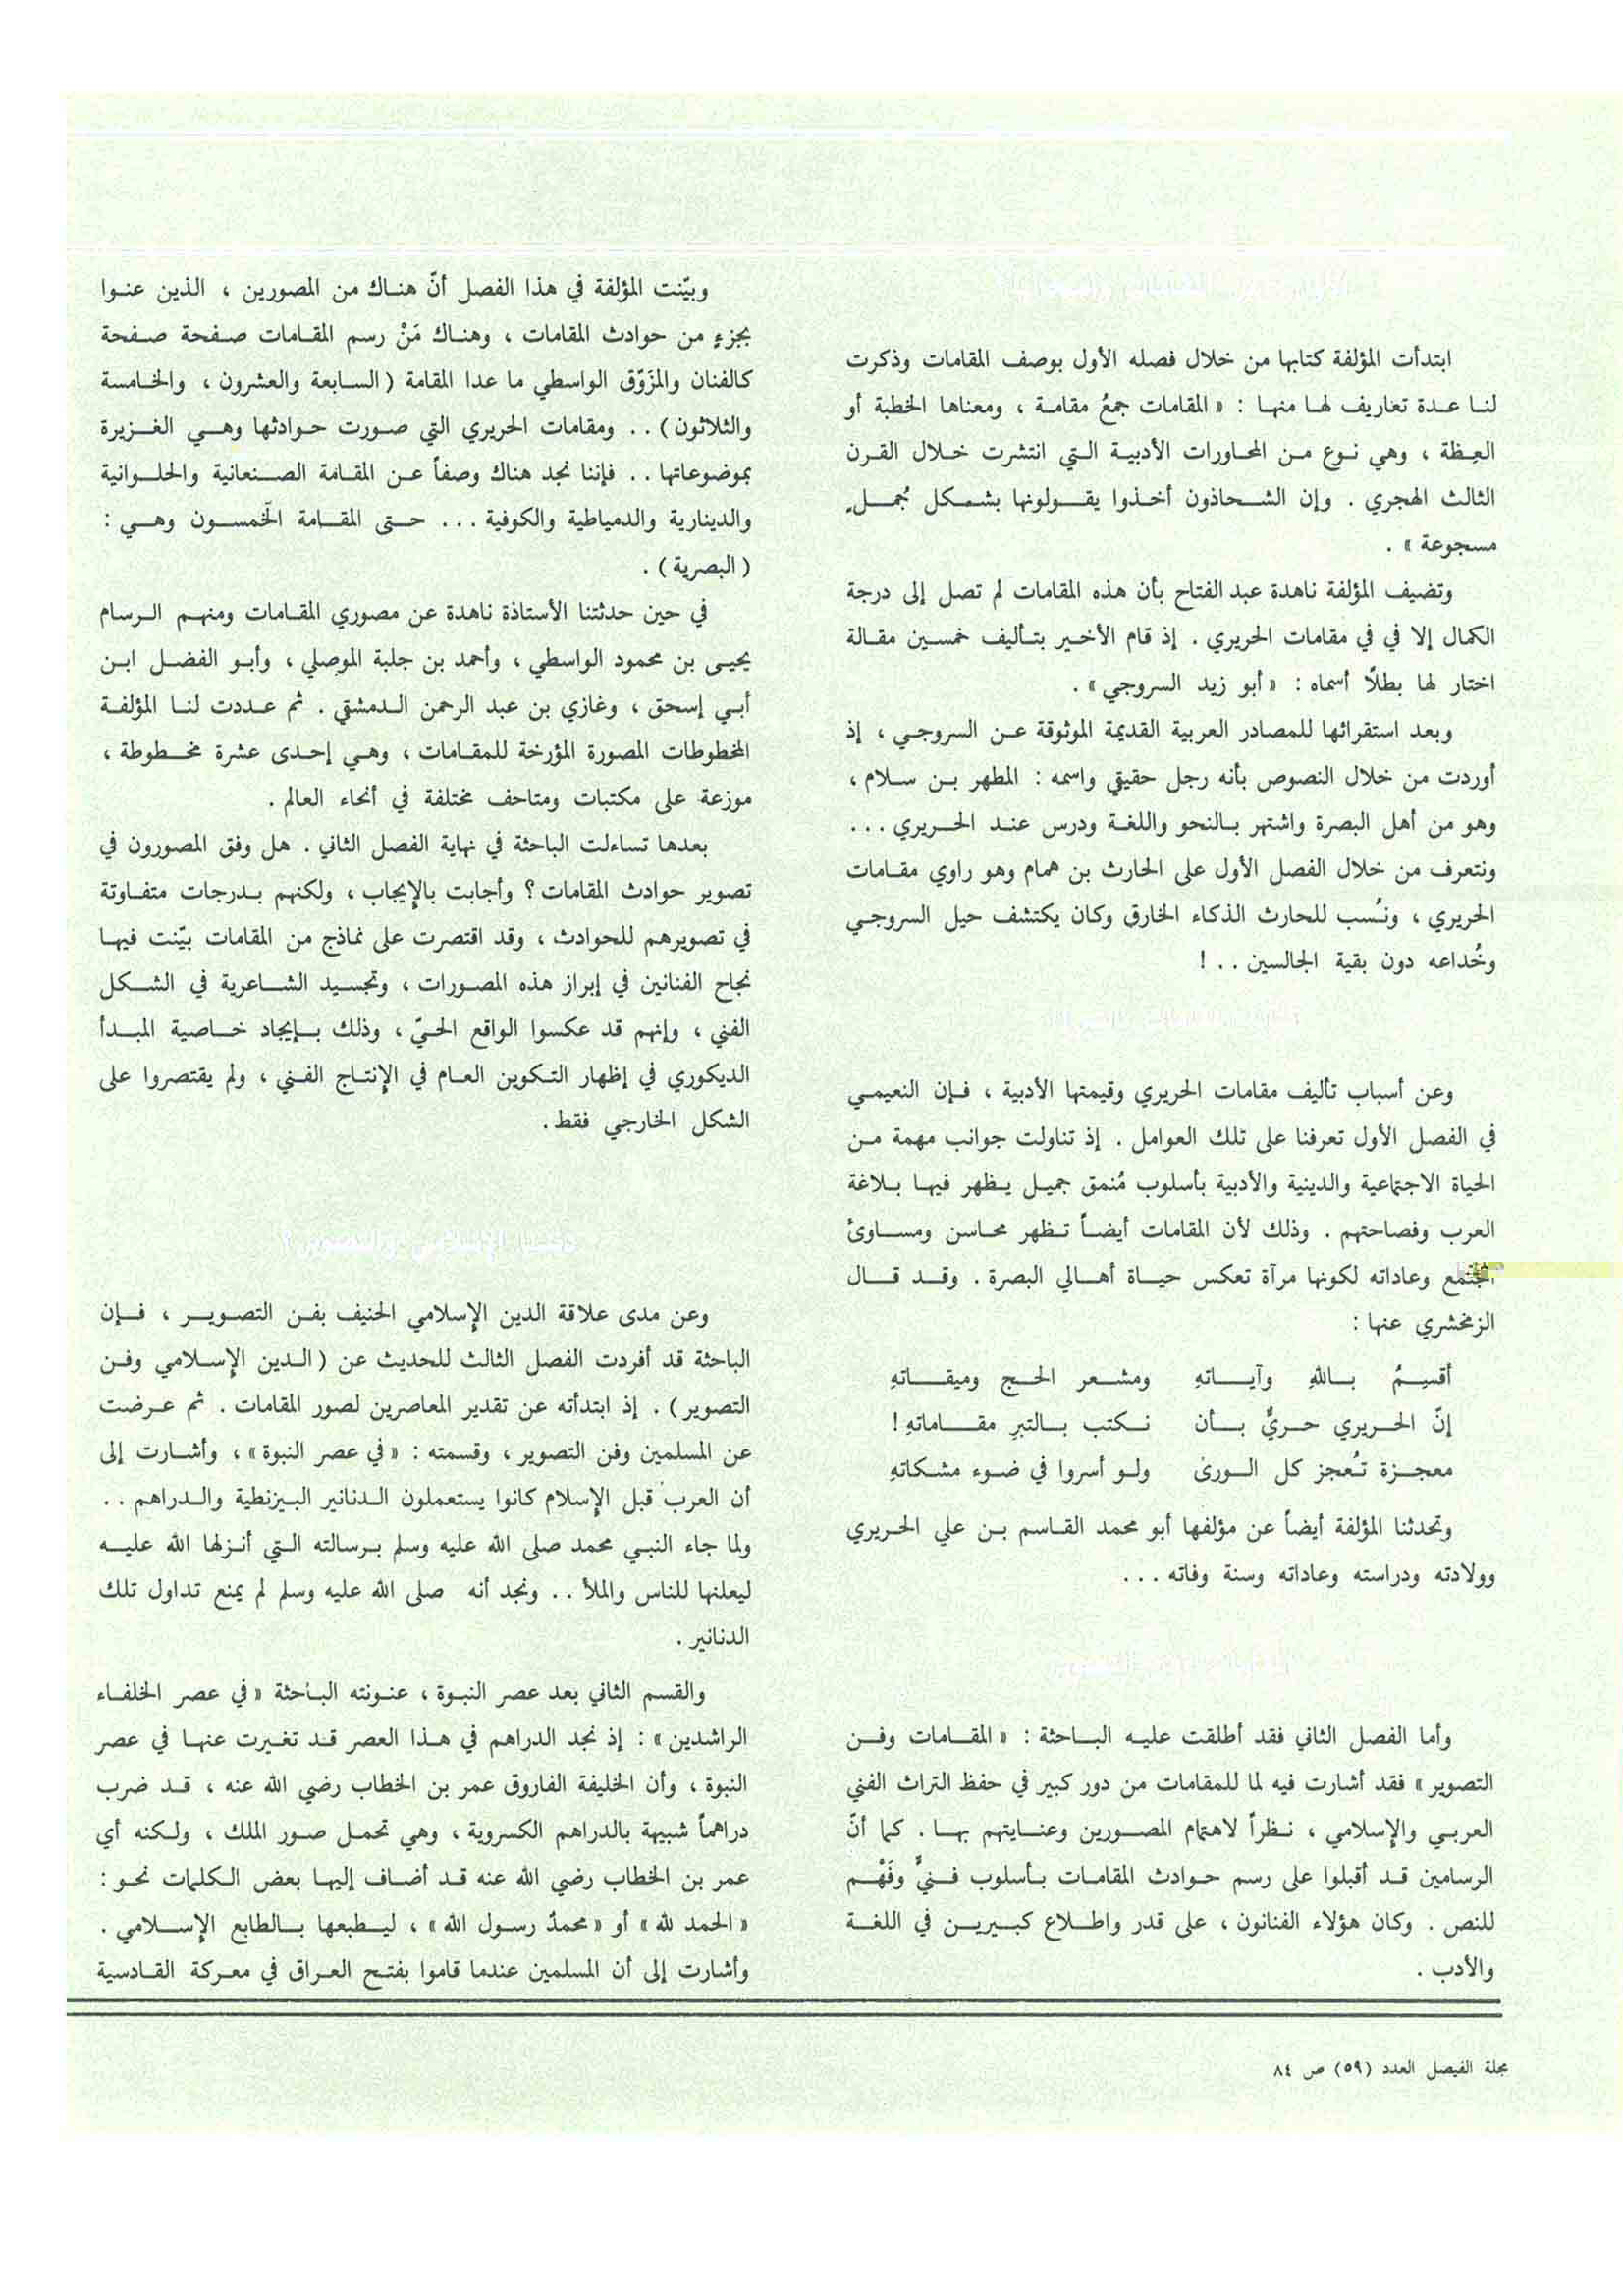 ابتدأت المؤلفة كتابها من خلال فصله الأول بوصف المقامات وذكرت
لنا عدة تعاريف لها منها : « المقامات جمعُ مقامة ، ومعناها الخطبة أو
العِظة ، وهي نوع من المحاورات الأدبية التي انتشرت خلال القرن
الثالث الهجري . وإن الشحاذون أخذوا يقولونها بشكل جُملٍ
مسجوعة » .
وتضيف المؤلفة ناهدة عبد الفتاح بأن هذه المقامات لم تصل إلى درجة
الكمال إلا في في مقامات الحريري . إذ قام الأخير بتأليف خمسين مقالة
اختار لها بطلًا أسماه : « أبو زيد السروجي » .
وبعد استقرائها للمصادر العربية القديمة الموثوقة عن السروجي ، إذ
أوردت من خلال النصوص بأنه رجل حقيقي واسمه : المطهر بن سلام ،
وهو من أهل البصرة واشتهر بالنحو واللغة ودرس عند الحريري ...
ونتعرف من خلال الفصل الأول على الحارث بن همام وهو راوي مقامات
الحريري ، ونُسب للحارث الذكاء الخارق وكان يكتشف حيل السروجي
وخُداعه دون بقية الجالسين .. !
وعن أسباب تأليف مقامات الحريري وقيمتها الأدبية ، فإن النعيمي
في الفصل الأول تعرفنا على تلك العوامل . إذ تناولت جوانب مهمة من
الحياة الاجتماعية والدينية والأدبية بأسلوب مُنمق جميل يظهر فيها بلاغة
العرب وفصاحتهم . وذلك لأن المقامات أيضاً تظهر محاسن ومساوئ
المجتمع وعاداته لكونها مرآة تعكس حياة أهالي البصرة . وقد قال
الزمخشري عنها :
أقسِمُ باللهِ وآياتهِ ومشعر الحج وميقاتهِ
إنّ الحريري حريٌّ بأن نكتب بالتبرِ مقاماتهِ !
معجزة تُعجز كل الورى ولو أسروا في ضوء مشكاتهِ
وتحدثنا المؤلفة أيضاً عن مؤلفها أبو محمد القاسم بن علي الحريري
وولادته ودراسته وعاداته وسنة وفاته ...
وأما الفصل الثاني فقد أطلقت عليه الباحثة : « المقامات وفن
التصوير » فقد أشارت فيه لما للمقامات من دور كبير في حفظ التراث الفني
العربي والإسلامي ، نظراً لاهتمام المصورين وعنايتهم بها . كما أنّ
الرسامين قد أقبلوا على رسم حوادث المقامات بأسلوب فنيٍّ وفَهْم
للنص . وكان هؤلاء الفنانون ، على قدر واطلاع كبيرين في اللغة
والأدب .
وبيّنت المؤلفة في هذا الفصل أنّ هناك من المصورين ، الذين عنوا
بجزءٍ من حوادث المقامات ، وهناك مَنْ رسم المقامات صفحة صفحة
كالفنان والمزَوّق الواسطي ما عدا المقامة ( السابعة والعشرون ، والخامسة
والثلاثون ) .. ومقامات الحريري التي صورت حوادثها وهي الغزيرة
بموضوعاتها .. فإننا نجد هناك وصفاً عن المقامة الصنعانية والحلوانية
والدينارية والدمياطية والكوفية ... حتى المقامة الخمسون وهي :
( البصرية ) .
في حين حدثتنا الأستاذة ناهدة عن مصوري المقامات ومنهم الرسام
يحيى بن محمود الواسطي ، وأحمد بن جلبة الموصِلي ، وأبو الفضل ابن
أبي إسحق ، وغازي بن عبد الرحمن الدمشقي . ثم عددت لنا المؤلفة
المخطوطات المصورة المؤرخة للمقامات ، وهي إحدى عشرة مخطوطة ،
موزعة على مكتبات ومتاحف مختلفة في أنحاء العالم .
بعدها تساءلت الباحثة في نهاية الفصل الثاني . هل وفق المصورون في
تصوير حوادث المقامات ؟ وأجابت بالإيجاب ، ولكنهم بدرجات متفاوتة
في تصويرهم للحوادث ، وقد اقتصرت على نماذج من المقامات بيّنت فيها
نجاح الفنانين في إبراز هذه المصورات ، وتجسيد الشاعرية في الشكل
الفني ، وإنهم قد عكسوا الواقع الحيّ ، وذلك بإيجاد خاصية المبدأ
الديكوري في إظهار التكوين العام في الإنتاج الفني ، ولم يقتصروا على
الشكل الخارجي فقط .
وعن مدى علاقة الدين الإسلامي الحنيف بفن التصوير ، فإن
الباحثة قد أفردت الفصل الثالث للحديث عن ( الدين الإسلامي وفن
التصوير ) . إذ ابتدأته عن تقدير المعاصرين لصور المقامات . ثم عرضت
عن المسلمين وفن التصوير ، وقسمته : « في عصر النبوة » ، وأشارت إلى
أن العرب قبل الإسلام كانوا يستعملون الدنانير البيزنطية والدراهم ..
ولما جاء النبي محمد صلى الله عليه وسلم برسالته التي أنزلها الله عليه
ليعلنها للناس والملأ .. ونجد أنه صلى الله عليه وسلم لم يمنع تداول تلك
الدنانير .
والقسم الثاني بعد عصر النبوة ، عنونته الباحثة « في عصر الخلفاء
الراشدين » : إذ نجد الدراهم في هذا العصر قد تغيرت عنها في عصر
النبوة ، وأن الخليفة الفاروق عمر بن الخطاب رضي الله عنه ، قد ضرب
دراهماً شبيهة بالدراهم الكسروية ، وهي تحمل صور الملك ، ولكنه أي
عمر بن الخطاب رضي الله عنه قد أضاف إليها بعض الكلمات نحو :
« الحمد لله » أو « محمدٌ رسول الله » ، ليطبعها بالطابع الإسلامي .
وأشارت إلى أن المسلمين عندما قاموا بفتح العراق في معركة القادسية
مجلة الفيصل العدد (٥٩) ص ٨٤